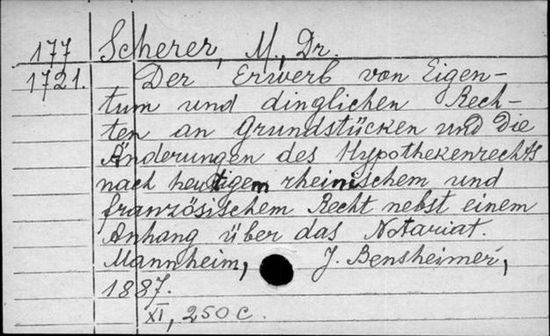 177 Scherer, M., Dr.
1721. Der Erwerb von Eigen-
tum und dinglichen Rech-
ten an Grundstücken und Die
Änderungen des Hypothekenrechts
nach heutigem rheinischem und
französischem Recht nebst einem
Anhang über das Notariat.
Mannheim, J. Bensheimer,
1887.
XI, 250 c.